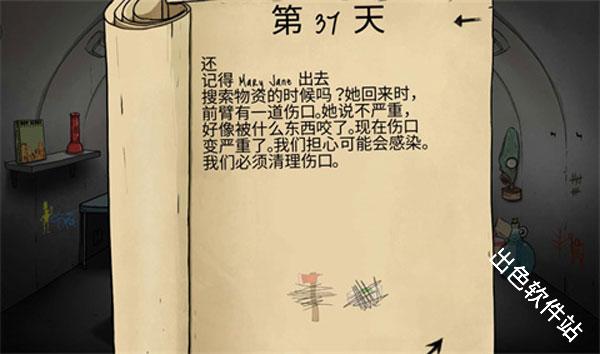 第 37 天
还
记得 Mary Jane 出去
搜索物资的时候吗?她回来时，
前臂有一道伤口。她说不严重，
好像被什么东西咬了。现在伤口
变严重了。我们担心可能会感染。
我们必须清理伤口。
出色软件站